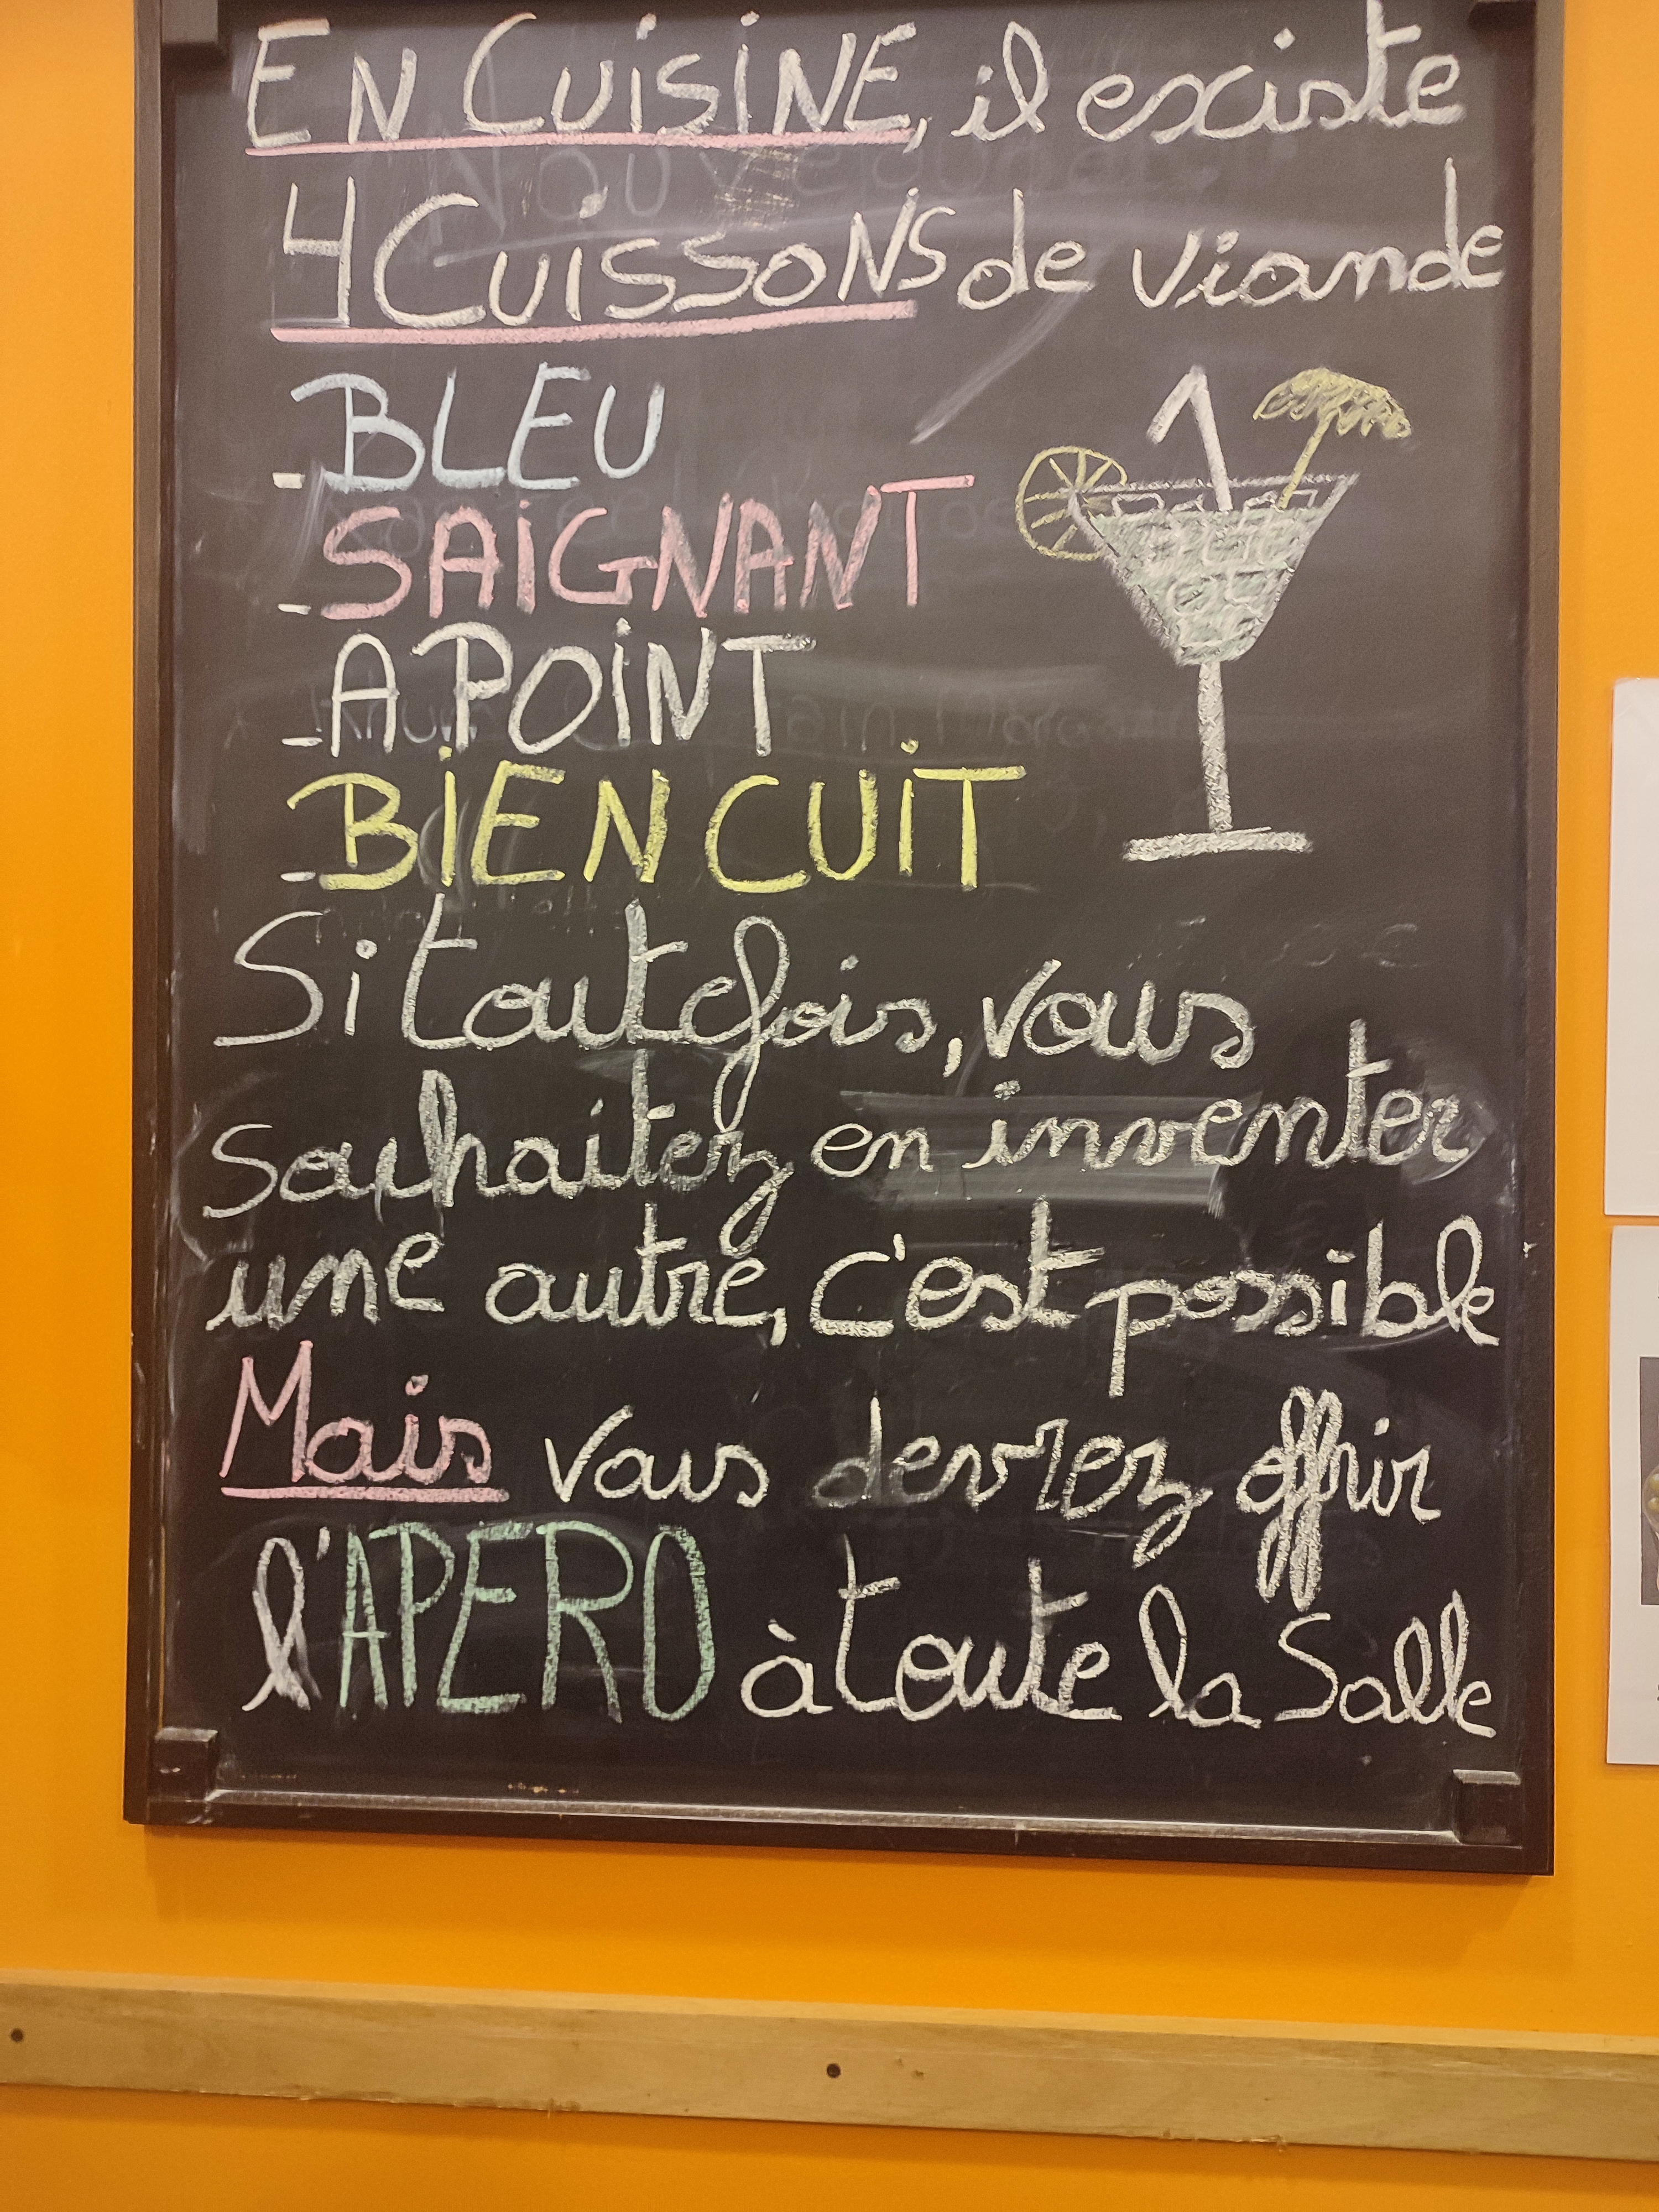 EN CUISINE, il existe
4 CUISSONS de viande
- BLEU
- SAIGNANT
- A POINT
- BIEN CUIT
Si toutefois, vous
souhaitez en inventer
une autre, c'est possible
Mais vous devrez offrir
l'APERO à toute la Salle